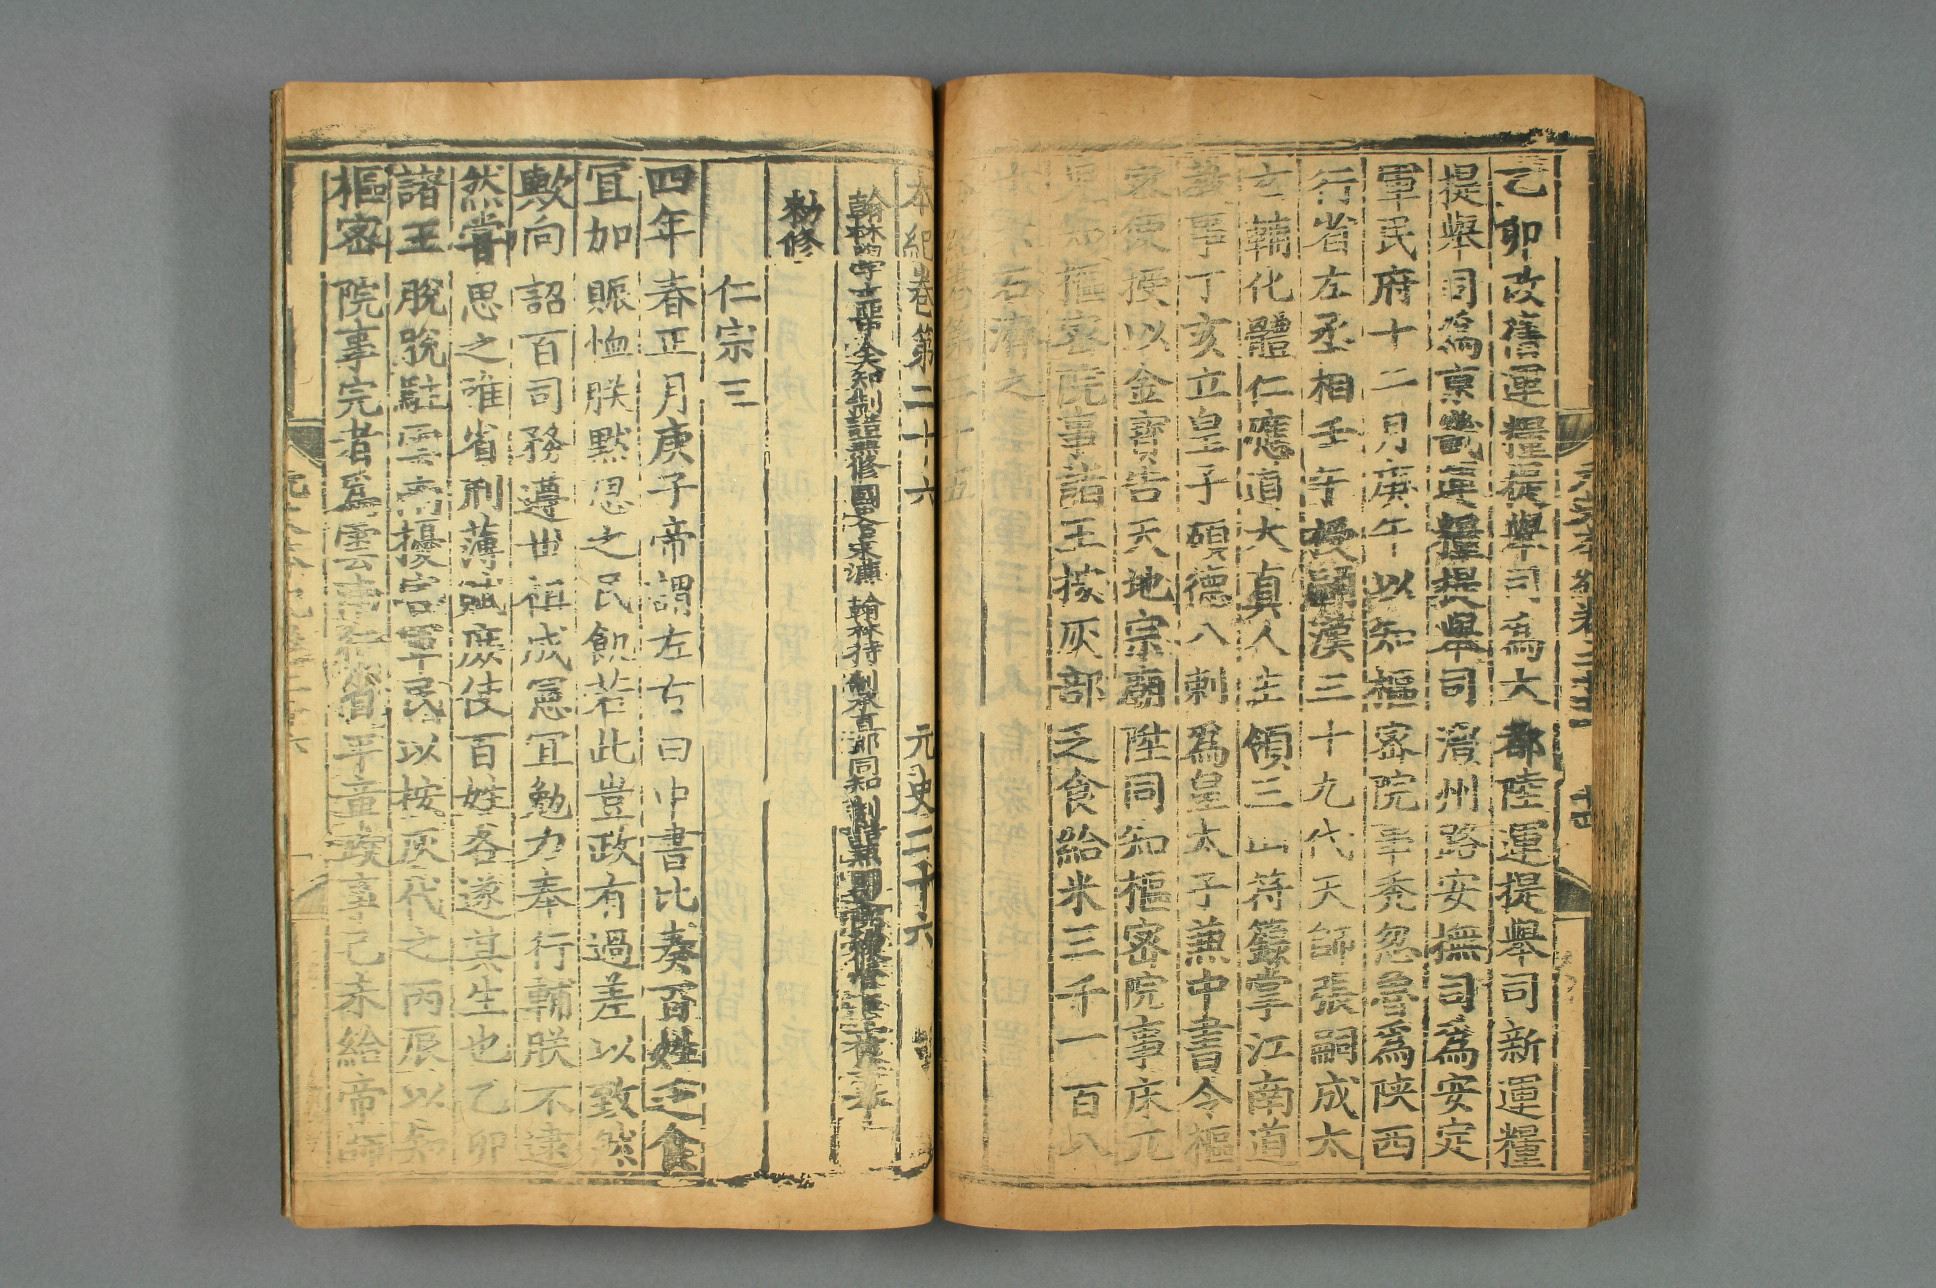 乙卯改舊運糧提舉司爲大都陸運提舉司新運糧
提舉司爲京畿運糧提舉司濟州路安撫司爲安定
軍民府十二月庚午以知樞密院事禿忽魯爲陝西
行省左丞相壬午授嗣漢三十九代天師張嗣成太
玄輔化體仁應道大真人主領三山符籙掌江南道
教事丁亥立皇子碩德八剌爲皇太子兼中書令樞
密使授以金寶告天地宗廟陞同知樞密院事床兀
兒知樞密院事諸王按灰部乏食給米三千一百八
十六石濟之
本紀卷第二十六 元史二十六
翰林學士亞中大夫知制誥兼修國史臣宋濂 翰林待制承直郎同知制誥兼國史院編修官臣王禕等
勅修
仁宗三
四年春正月庚子帝謂左右曰中書比奏百姓乏食
宜加賑恤朕默思之民飢若此豈政有過差以致然
歟向詔百司務遵世祖成憲宜勉力奉行輔朕不逮
然嘗思之唯省刑薄賦庶使百姓各遂其生也乙卯
諸王脫脫駐雲南擾害軍民以按灰代之丙辰以知
樞密院事完者爲雲南行省平章政事己未給帝師